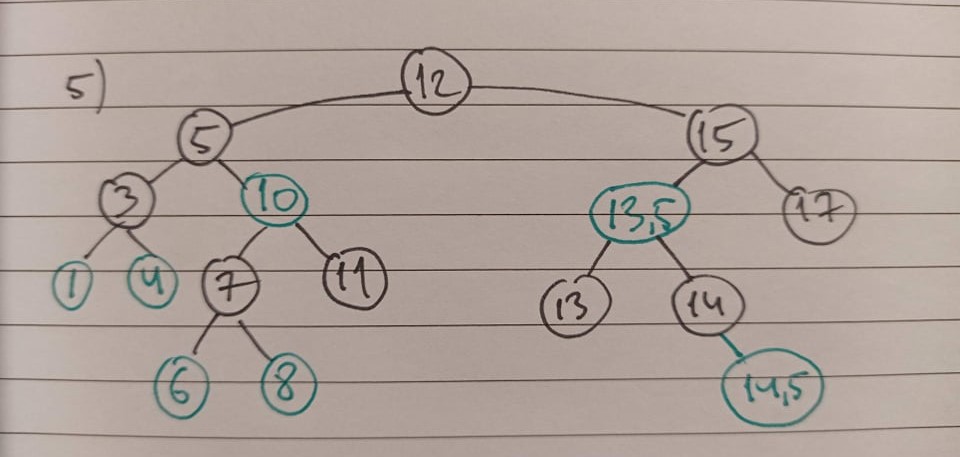 5)
12
5 15
3 10 13,5 17
1 4 7 11 13 14
6 8 14,5